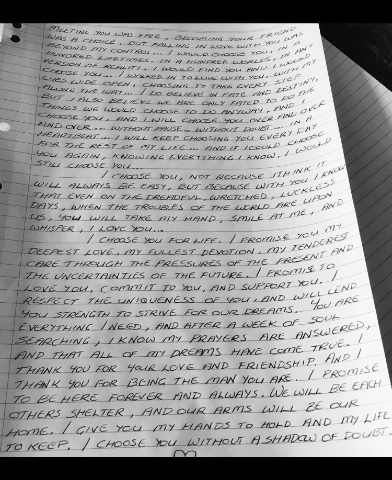 MEETING YOU WAS FATE, BECOMING YOUR FRIEND
WAS A CHOICE, BUT FALLING IN LOVE WITH YOU WAS
BEYOND MY CONTROL... I WOULD CHOOSE YOU, IN A
HUNDRED LIFETIMES, IN A HUNDRED WORLDS, IN ANY
VERSION OF REALITY, I WOULD FIND YOU AND I WOULD
CHOOSE YOU... I WALKED INTO LOVE WITH YOU, WITH MY
EYES WIDE OPEN, CHOOSING TO TAKE EVERY STEP
ALONG THE WAY... I DO BELIEVE IN FATE AND DESTINY,
BUT I ALSO BELIEVE WE ARE ONLY FATED TO DO THE
THINGS WE WOULD CHOOSE TO DO ANYWAY, AND I
CHOOSE YOU, AND I WILL CHOOSE YOU OVER AND OVER
AND OVER... WITHOUT PAUSE... WITHOUT DOUBT... IN A
HEARTBEAT... I WILL KEEP CHOOSING YOU EVERY DAY
FOR THE REST OF MY LIFE... AND IF I COULD CHOOSE
YOU AGAIN, KNOWING EVERYTHING I KNOW, I WOULD
STILL CHOOSE YOU...
I CHOOSE YOU, NOT BECAUSE I THINK IT
WILL ALWAYS BE EASY, BUT BECAUSE WITH YOU I KNOW
THAT EVEN ON THE DREADFUL, WRETCHED, LUCKLESS
DAYS, WHEN THE TROUBLES OF THE WORLD ARE UPON
US, YOU WILL TAKE MY HAND, SMILE AT ME, AND
WHISPER, I LOVE YOU...
I CHOOSE YOU FOR LIFE. I PROMISE YOU MY
DEEPEST LOVE, MY FULLEST DEVOTION, MY TENDEREST
CARE THROUGH THE PRESSURES OF THE PRESENT AND
THE UNCERTAINTIES OF THE FUTURE. I PROMISE TO
LOVE YOU, COMMIT TO YOU, AND SUPPORT YOU. I
RESPECT THE UNIQUENESS OF YOU, AND WILL LEND
YOU STRENGTH TO STRIVE FOR OUR DREAMS. YOU ARE
EVERYTHING I NEED, AND AFTER A WEEK OF SOUL
SEARCHING, I KNOW MY PRAYERS ARE ANSWERED,
AND THAT ALL OF MY DREAMS HAVE COME TRUE. I
THANK YOU FOR YOUR LOVE AND FRIENDSHIP. AND I
THANK YOU FOR BEING THE MAN YOU ARE. I PROMISE
TO BE HERE FOREVER AND ALWAYS. WE WILL BE EACH
OTHERS SHELTER, AND OUR ARMS WILL BE OUR
HOME. I GIVE YOU MY HANDS TO HOLD AND MY LIFE
TO KEEP. I CHOOSE YOU WITHOUT A SHADOW OF DOUBT.